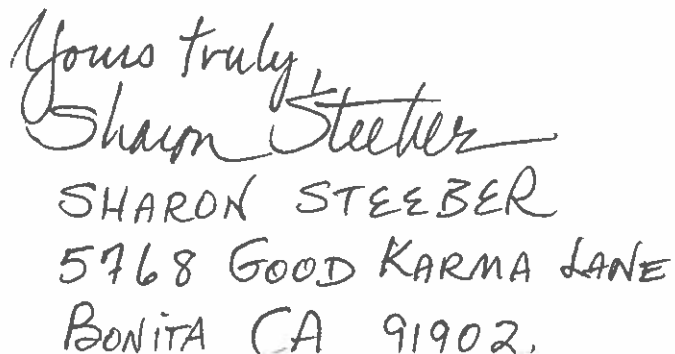 Yours truly,
Sharon Steeber
SHARON STEEBER
5768 GOOD KARMA LANE
BONITA CA 91902